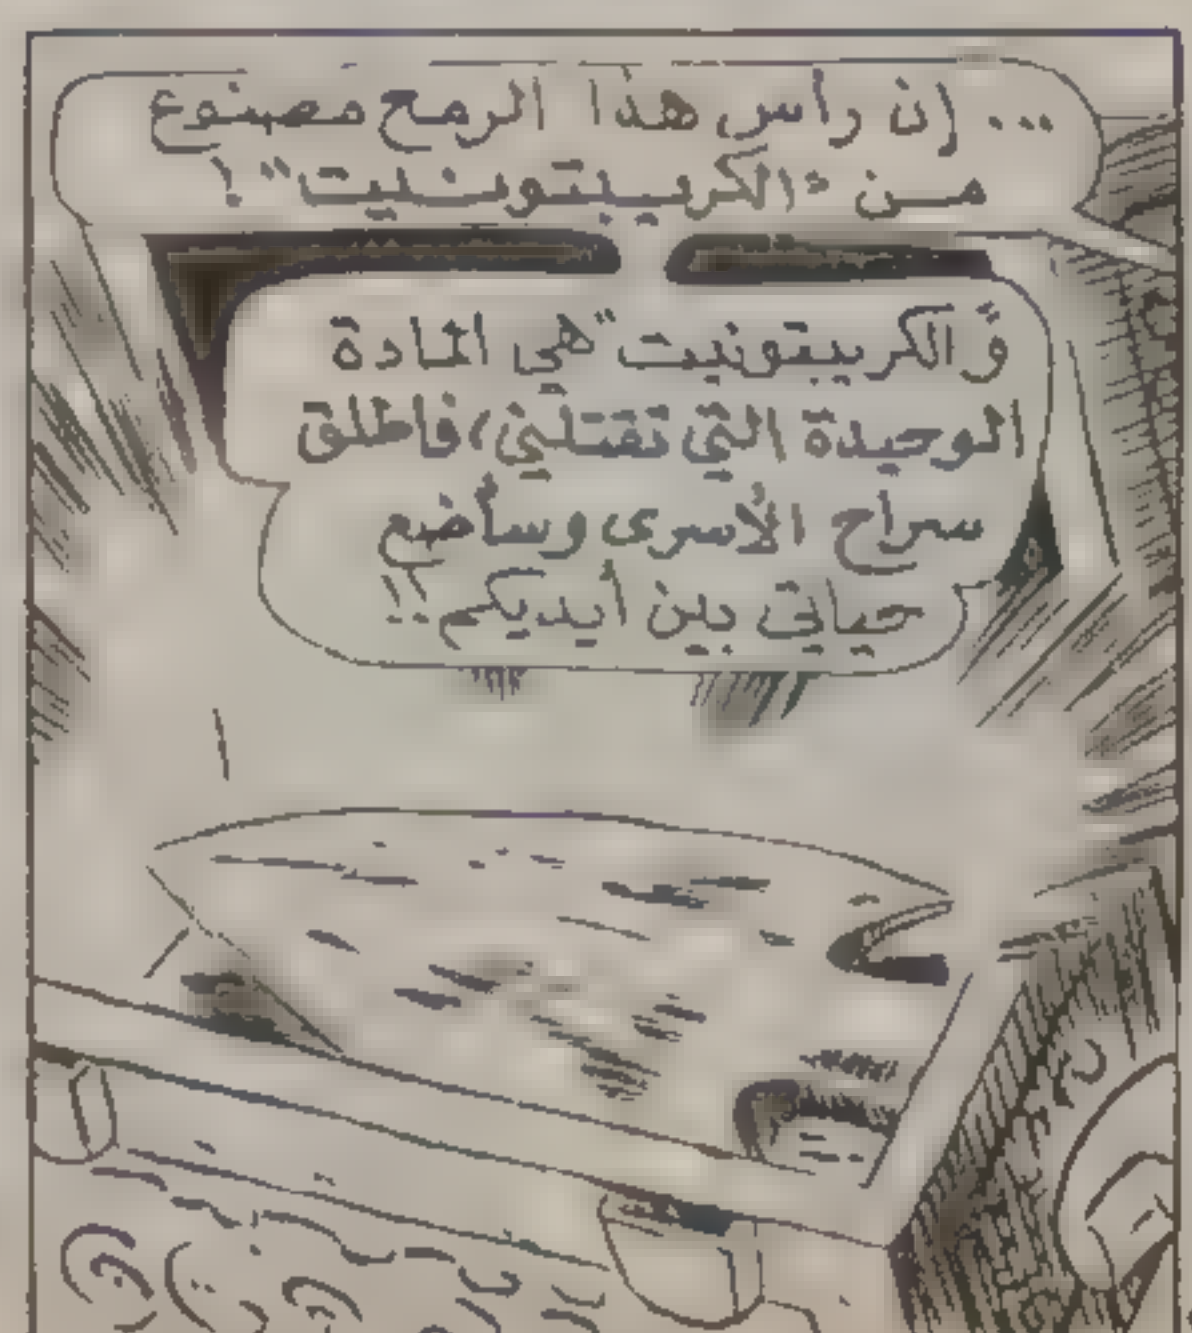 ... إن رأس هذا الرمح مصنوع
من "الكريبتونيت"!
و"الكريبتونيت" هي المادة
الوحيدة التي تقتلني، فاطلق
سراح الأسرى وسأضع
حياتي بين أيديكم!!